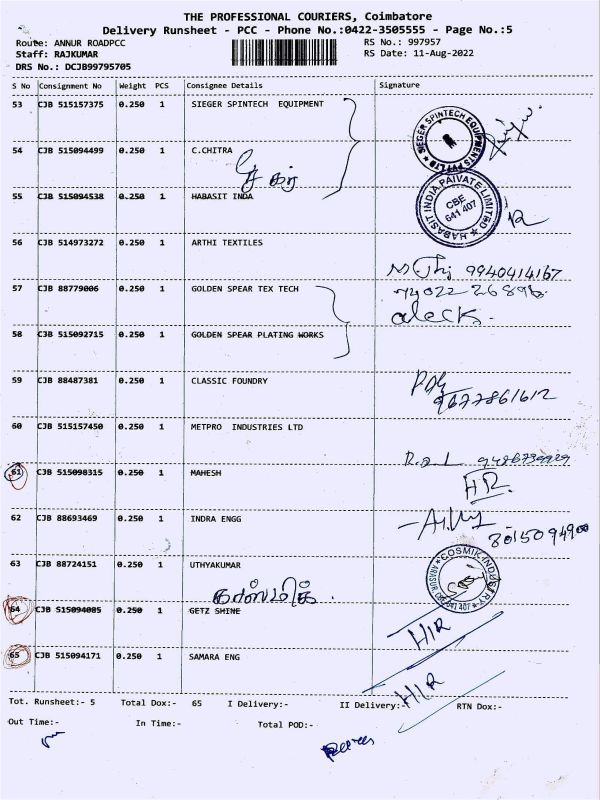 THE PROFESSIONAL COURIERS, Coimbatore
Delivery Runsheet - PCC - Phone No.:0422-3505555 - Page No.:5
Route: ANNUR ROADPCC RS No.: 997957
Staff: RAJKUMAR RS Date: 11-Aug-2022
DRS No.: DCJB99795705
S No Consignment No Weight PCS Consignee Details Signature
53 CJB 515157375 0.250 1 SIEGER SPINTECH EQUIPMENT
SIEGER SPINTECH EQUIPMENTS PVT LTD
54 CJB 515094499 0.250 1 C.CHITRA
55 CJB 515094538 0.250 1 HABASIT INDA
HABASIT INDIA PAIVATE LIMITED
CBE
641 407
56 CJB 514973272 0.250 1 ARTHI TEXTILES
9940414167
57 CJB 88779006 0.250 1 GOLDEN SPEAR TEX TECH
58 CJB 515092715 0.250 1 GOLDEN SPEAR PLATING WORKS
59 CJB 88487381 0.250 1 CLASSIC FOUNDRY
9677861612
60 CJB 515157450 0.250 1 METPRO INDUSTRIES LTD
61 CJB 515098315 0.250 1 MAHESH
62 CJB 88693469 0.250 1 INDRA ENGG
8015094900
63 CJB 88724151 0.250 1 UTHYAKUMAR
COSMIK INDUSTRY
ARASUR, CBE 641 407
64 CJB 515094085 0.250 1 GETZ SHINE
HIR
65 CJB 515094171 0.250 1 SAMARA ENG
HIR
Tot. Runsheet:- 5 Total Dox:- 65 I Delivery:- II Delivery:- RTN Dox:-
Out Time:- In Time:- Total POD:-